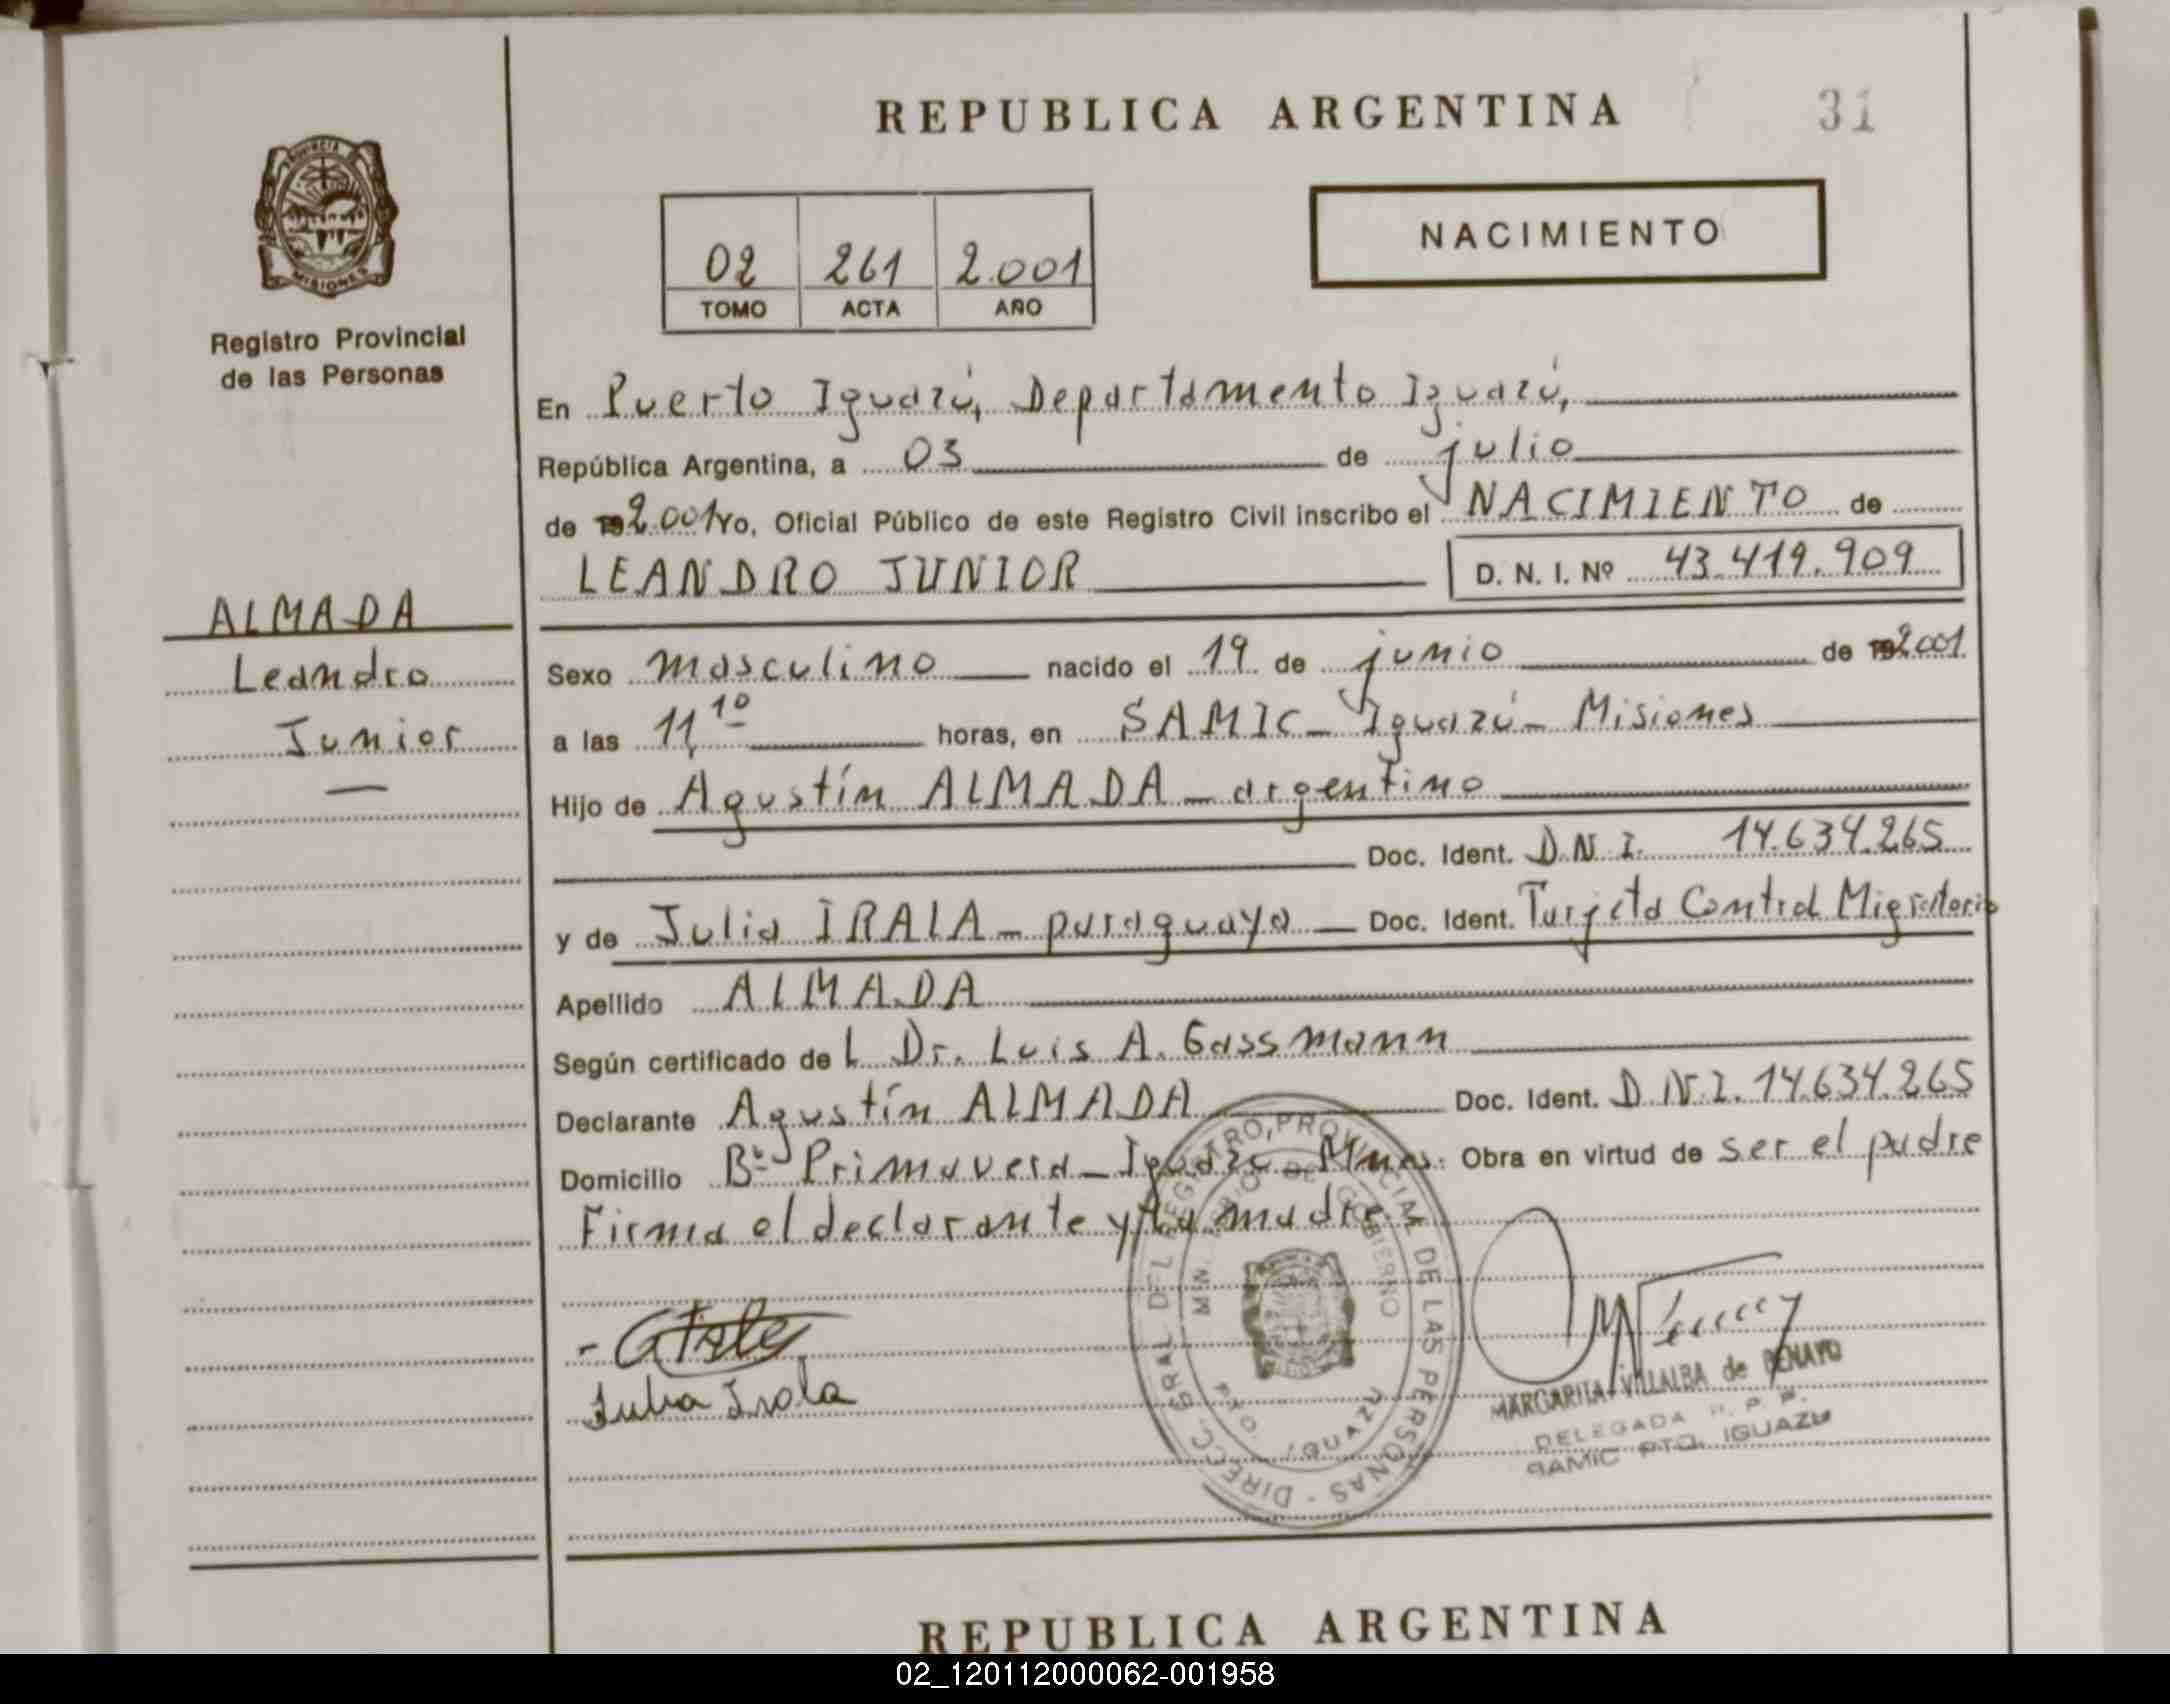 REPUBLICA ARGENTINA
31
PROVINCIA DE
MISIONES
Registro Provincial
de las Personas
NACIMIENTO
02 261 2.001
TOMO ACTA AÑO
En Puerto Iguazú, Departamento Iguazú,
República Argentina, a 03 de julio
de 19 2.001 Yo, Oficial Público de este Registro Civil inscribo el NACIMIENTO de
LEANDRO JUNIOR D. N. I. Nº 43.419.909
ALMADA
Leandro
Junior
Sexo masculino nacido el 19 de junio de 19 2001
a las 11,10 horas, en SAMIC - Iguazú - Misiones
Hijo de Agustín ALMADA - argentino
Doc. Ident. D.N.I. 14.634.265
y de Julia IRALA - paraguaya Doc. Ident. Tarjeta Control Migratorio
Apellido ALMADA
Según certificado de l Dr. Luis A. Gassmann
Declarante Agustín ALMADA Doc. Ident. D.N.I. 14.634.265
Domicilio Bº Primavera - Iguazú Mnes. Obra en virtud de ser el padre
Firma el declarante y la madre
Julia Irala
DIRECC. GRAL. DEL REGISTRO PROVINCIAL DE LAS PERSONAS -
MINISTERIO DE GOBIERNO
PTO. IGUAZU
MARGARITA VILLALBA de BENAYO
DELEGADA R. P. P.
SAMIC PTO. IGUAZU
REPUBLICA ARGENTINA
02_120112000062-001958